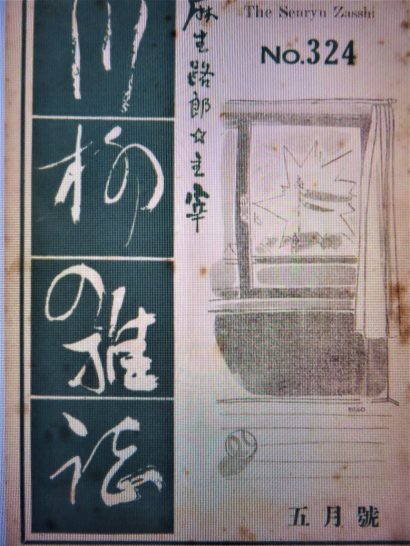 The Senryu Zasshi
No.324
川柳の雑誌
麻生路郎☆主宰
五月號